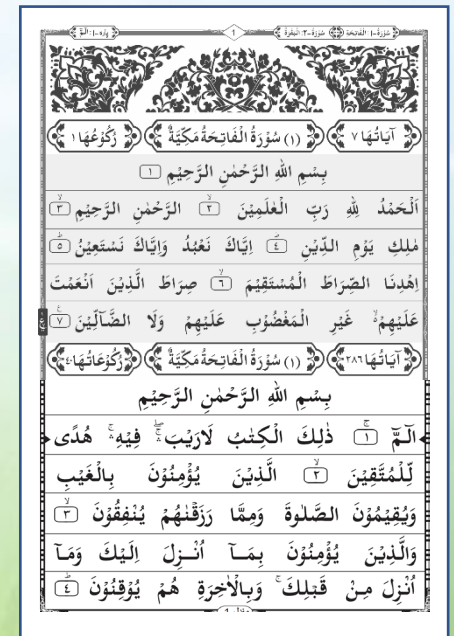 پاره-١: الٓمّٓ
1
سُوْرَةُ-١: اَلْفَاتِحَة سُوْرَةُ-٢: اَلْبَقَرَة
آيَاتُهَا ٧ (١) سُوْرَةُ الْفَاتِحَةُ مَكِّيَّةٌ رُكُوْعُهَا ١
بِسْمِ اللهِ الرَّحْمٰنِ الرَّحِيْمِ ١
اَلْحَمْدُ لِلّٰهِ رَبِّ الْعٰلَمِيْنَ ٢ الرَّحْمٰنِ الرَّحِيْمِ ٣
مٰلِكِ يَوْمِ الدِّيْنِ ٤ اِيَّاكَ نَعْبُدُ وَاِيَّاكَ نَسْتَعِيْنُ ٥
اِهْدِنَا الصِّرَاطَ الْمُسْتَقِيْمَ ٦ صِرَاطَ الَّذِيْنَ اَنْعَمْتَ
عَلَيْهِمْ غَيْرِ الْمَغْضُوْبِ عَلَيْهِمْ وَلَا الضَّآلِّيْنَ ٧
آيَاتُهَا ٢٨٦ (١) سُوْرَةُ الْفَاتِحَةُ مَكِّيَّةٌ رُكُوْعَاتُهَا ٤٠
بِسْمِ اللهِ الرَّحْمٰنِ الرَّحِيْمِ
الٓمّٓ ١ ذٰلِكَ الْكِتٰبُ لَارَيْبَ فِيْهِ هُدًى
لِّلْمُتَّقِيْنَ ٢ الَّذِيْنَ يُؤْمِنُوْنَ بِالْغَيْبِ
وَيُقِيْمُوْنَ الصَّلٰوةَ وَمِمَّا رَزَقْنٰهُمْ يُنْفِقُوْنَ ٣
وَالَّذِيْنَ يُؤْمِنُوْنَ بِمَآ اُنْزِلَ اِلَيْكَ وَمَآ
اُنْزِلَ مِنْ قَبْلِكَ وَبِالْاٰخِرَةِ هُمْ يُوْقِنُوْنَ ٤